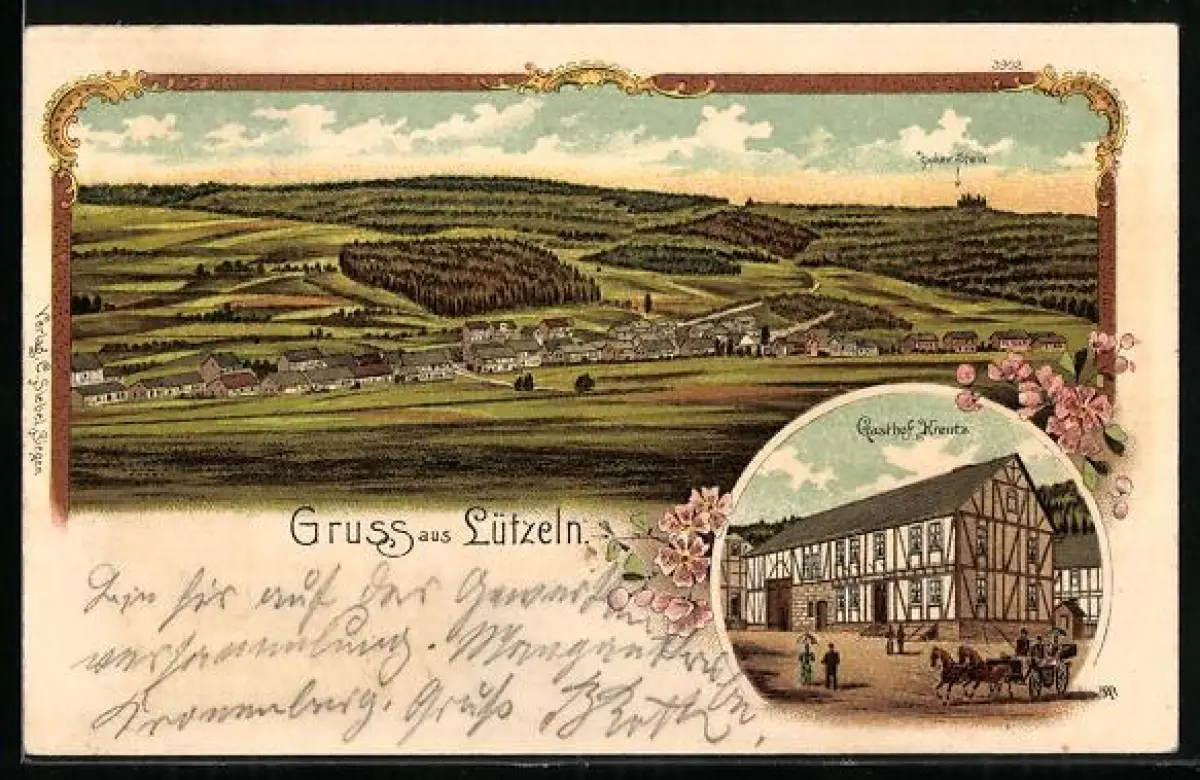 3902
Hoher Stein
Verlag C. Siebel, Siegen
Gasthof Kreutz
Gruss aus Lützeln.
Bin hir auf der
versammlung.
Kronenberg. Gruß